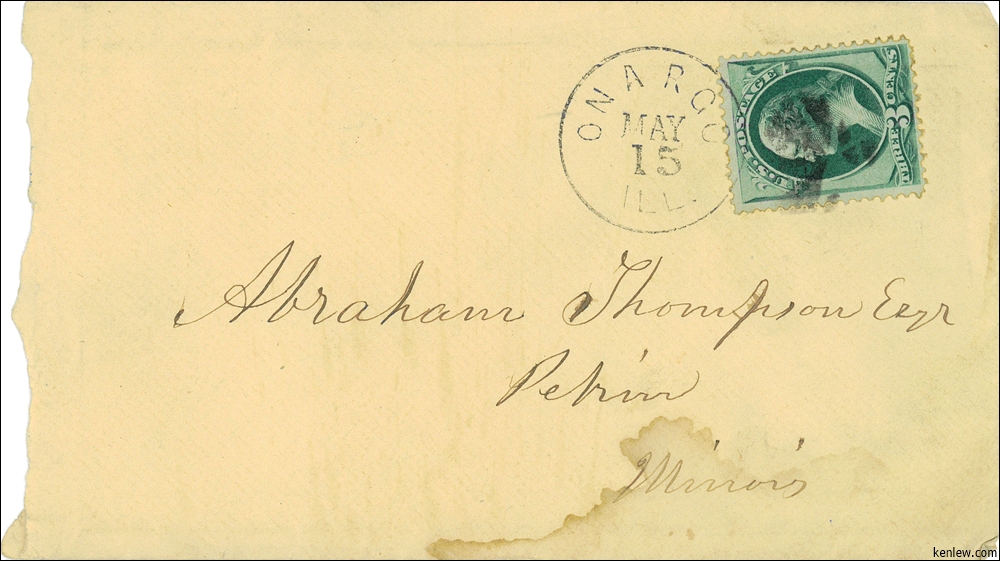 ONARGO
MAY
15
ILL.
POSTAGE
3
Abraham Thompson Esqr
Illinois
kenlew.com